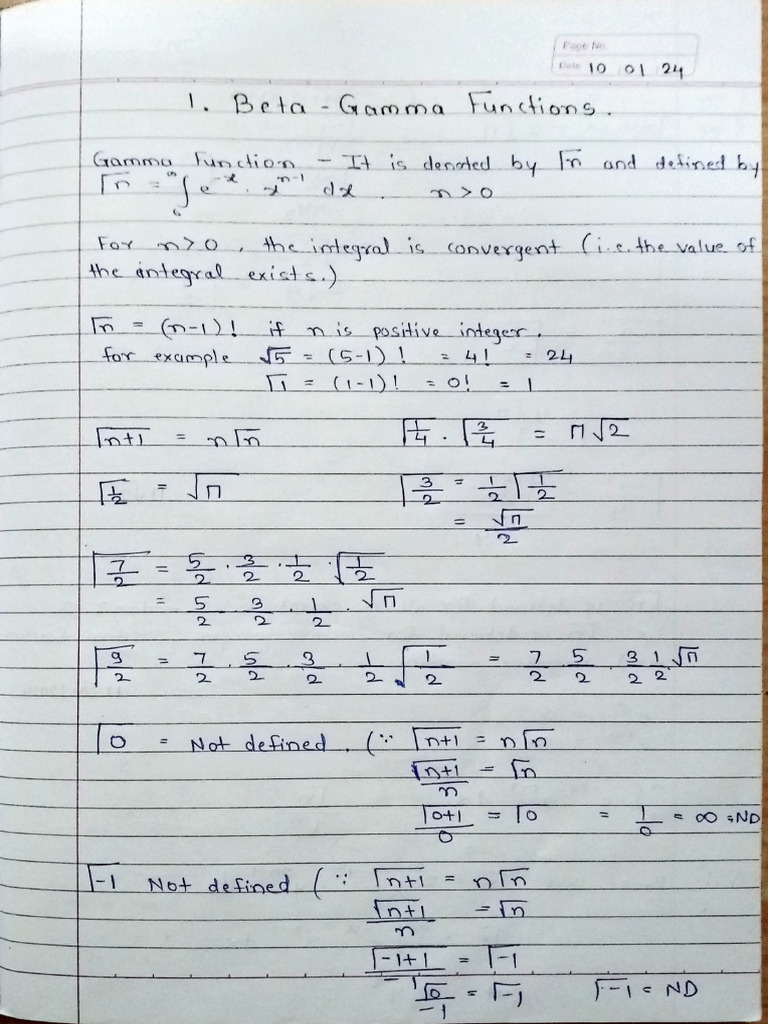 Page No.
Date 10 01 24
1. Beta - Gamma Functions.
Gamma function - It is denoted by Γn and defined by
Γn = ∫₀^∞ e^-x . x^n-1 dx . n > 0
For n > 0 , the integral is convergent (i.e. the value of
the integral exists.)
Γn = (n-1)! if n is positive integer.
for example √5 = (5-1)! = 4! = 24
Γ1 = (1-1)! = 0! = 1
Γn+1 = nΓn Γ1/4 . Γ3/4 = π√2
Γ1/2 = √π Γ3/2 = 1/2 Γ1/2
= √π/2
Γ7/2 = 5/2 . 3/2 . 1/2 . √1/2
= 5/2 . 3/2 . 1/2 . √π
Γ9/2 = 7/2 . 5/2 . 3/2 . 1/2 √1/2 = 7/2 . 5/2 . 3/2 1/2 √π
Γ0 = Not defined. (∵ Γn+1 = nΓn
Γn+1/n = Γn
Γ0+1/0 = Γ0 = 1/0 = ∞ = ND
Γ-1 Not defined (∵ Γn+1 = nΓn
Γn+1/n = Γn
Γ-1+1/-1 = Γ-1
Γ0/-1 = Γ-1 Γ-1 = ND